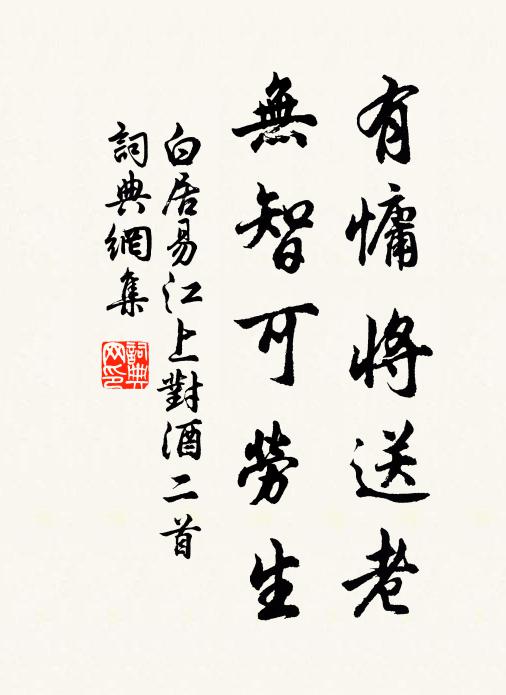 有慵將送老
無智可勞生
白居易江上對酒二首
詞典網集
詞典网印